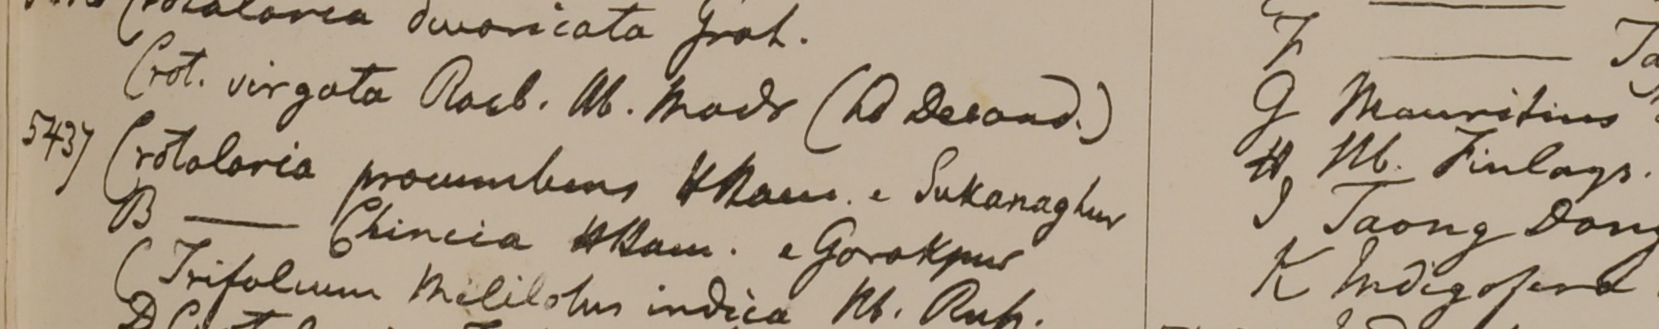 Crotalaria divaricata Grah.
Crot. virgata Roxb. Hb. Madr (hd Decand.)
5437 Crotalaria procumbens HHam. e Sukanaghur
B —— Chincia HHam. e Gorakpur
C Trifolium Melilotus indica Hb. Rup.
D
F ——
G Mauritius
H Hb. Finlays.
I Taong Dong
K Indigofera